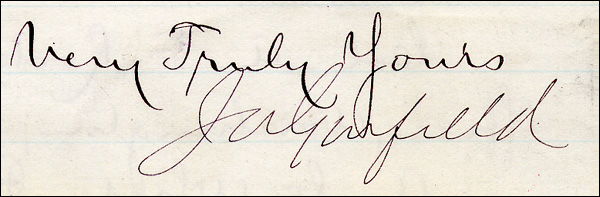 Very Truly Yours
J A Garfield